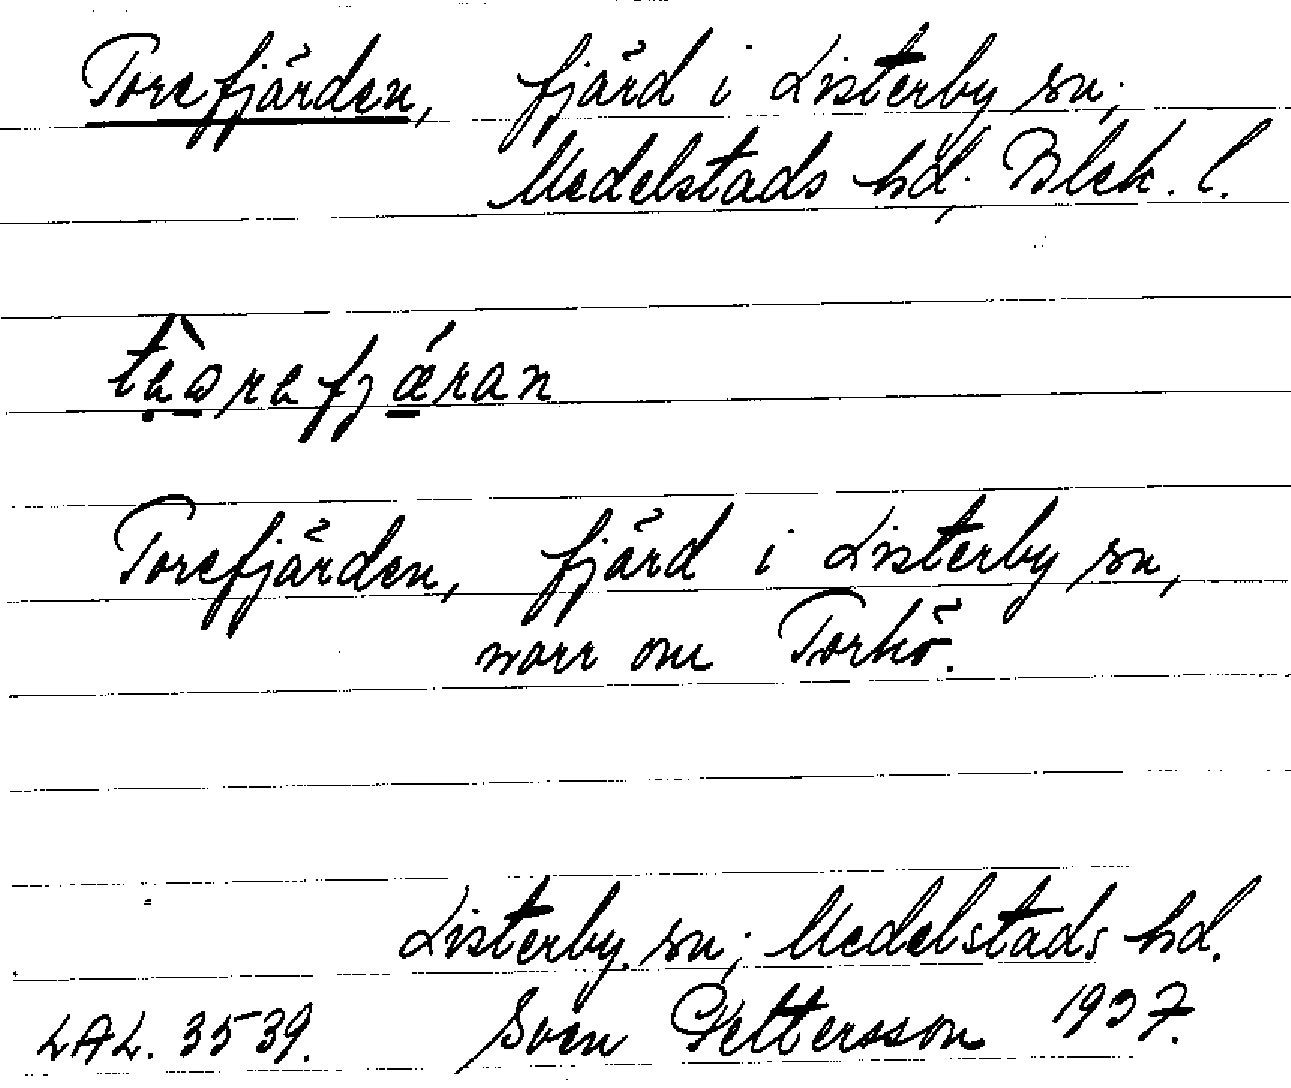 Torefjärden, fjärd i Listerby sn;
Medelstads hd; Blek. l.
Torefjärden, fjärd i Listerby sn,
norr om Torkö.
Listerby sn; Medelstads hd.
LAL. 3539. Sven Pettersson 1937.